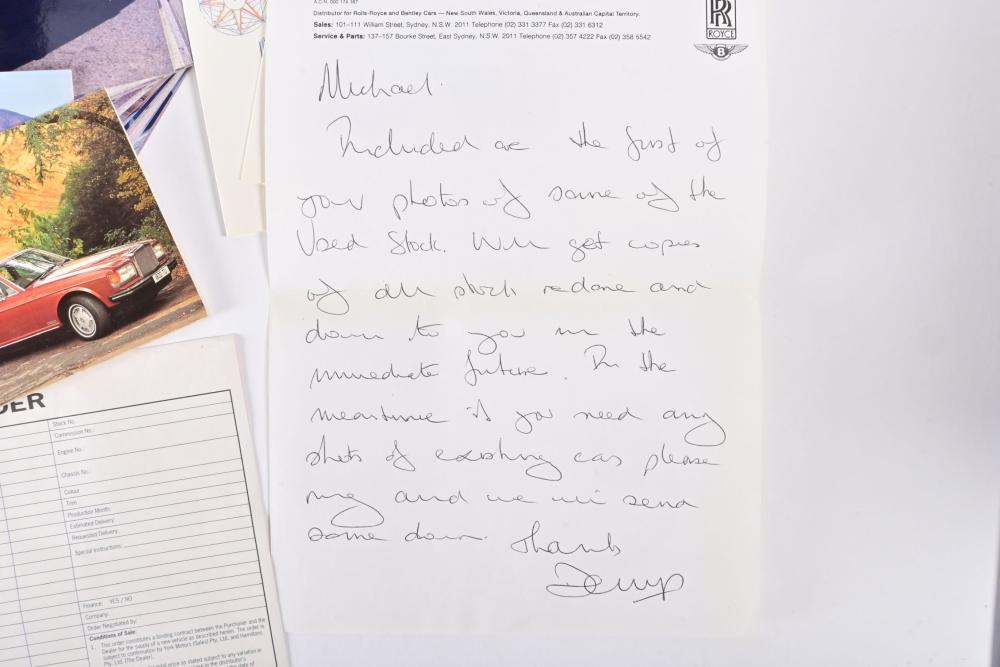 A.C.N. 000 174 187
Distributor for Rolls-Royce and Bentley Cars — New South Wales, Victoria, Queensland & Australian Capital Territory.
Sales: 101–111 William Street, Sydney, N.S.W. 2011 Telephone (02) 331 3377 Fax (02) 331 6312
Service & Parts: 137–157 Bourke Street, East Sydney, N.S.W. 2011 Telephone (02) 357 4222 Fax (02) 358 5542
RR
ROYCE
B
Michael.
Included are the first of
your photos of some of the
Used Stock. Will get copies
of all stock redone and
down to you in the
immediate future. In the
meantime if you need any
shots of existing cars please
ring and we will send
some down. Thanks
DER
Stock No.
Commission No.:
Engine No.:
Chassis No.:
Colour
Trim
Production Month:
Estimated Delivery:
Requested Delivery:
Special Instructions:
Finance: YES / NO
Company:
Order Negotiated by:
Conditions of Sale:
1. This order constitutes a binding contract between the Purchaser and the
Dealer for the supply of a new vehicle as described herein. The order is
subject to confirmation by York Motors (Sales) Pty. Ltd. and Hamilton
Pty. Ltd. (The Dealer).
price as stated subject to any variation in